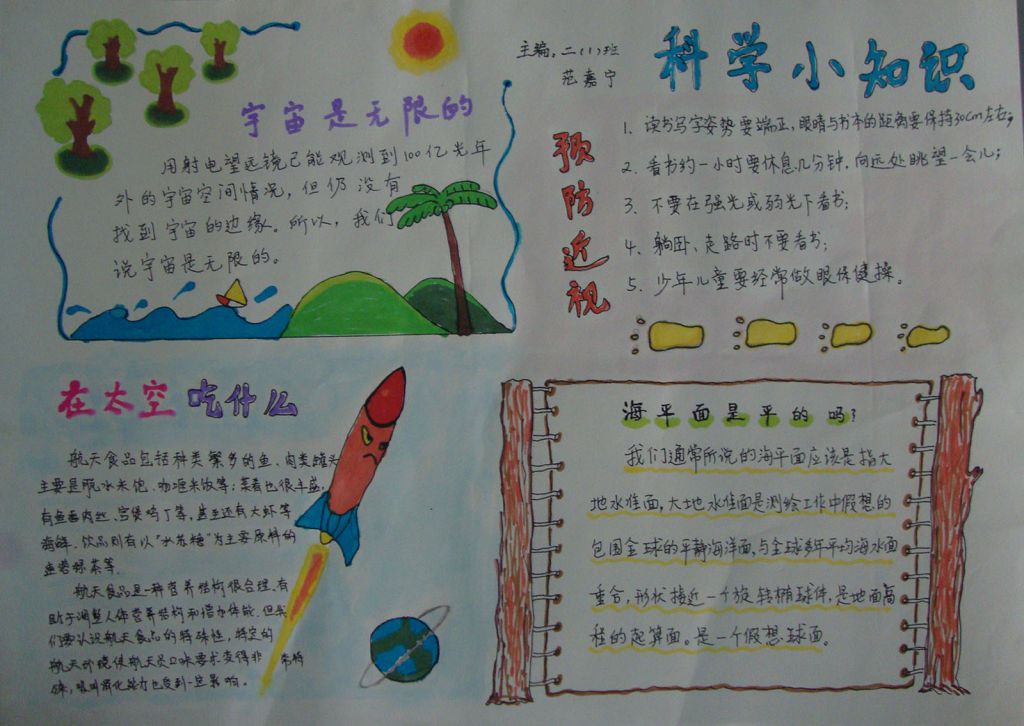 科学小知识
主编：二(1)班
范嘉宁
宇宙是无限的
用射电望远镜已能观测到100亿光年
外的宇宙空间情况，但仍没有
找到宇宙的边缘。所以，我们
说宇宙是无限的。
预防近视
1、读书写字姿势要端正，眼睛与书本的距离要保持30cm左右；
2、看书约一小时要休息几分钟，向远处眺望一会儿；
3、不要在强光或弱光下看书；
4、躺卧、走路时不要看书；
5、少年儿童要经常做眼保健操。
在太空吃什么
航天食品包括种类繁多的鱼、肉类罐头
主要是脱水米饱、咖喱米饭等；菜肴也很丰盛，
有鱼香肉丝、宫保鸡丁等，甚至还有大虾等
海鲜。饮品则有以“冰茶糖”为主要原料的
绿茶等。
航天食品是一种营养结构很合理、有
助于调整人体营养结构和增加体能。但我
们要认识航天食品的特殊性，特定的
航天环境使航天员口味要求变得非常特
殊，吸叫消化能力也受到一定影响。
海平面是平的吗？
我们通常所说的海平面应该是指大
地水准面，大地水准面是测绘工作中假想的
包围全球的平静海洋面，与全球多年平均海水面
重合，形状接近一个旋转椭球体，是地面高
程的起算面。是一个假想球面。